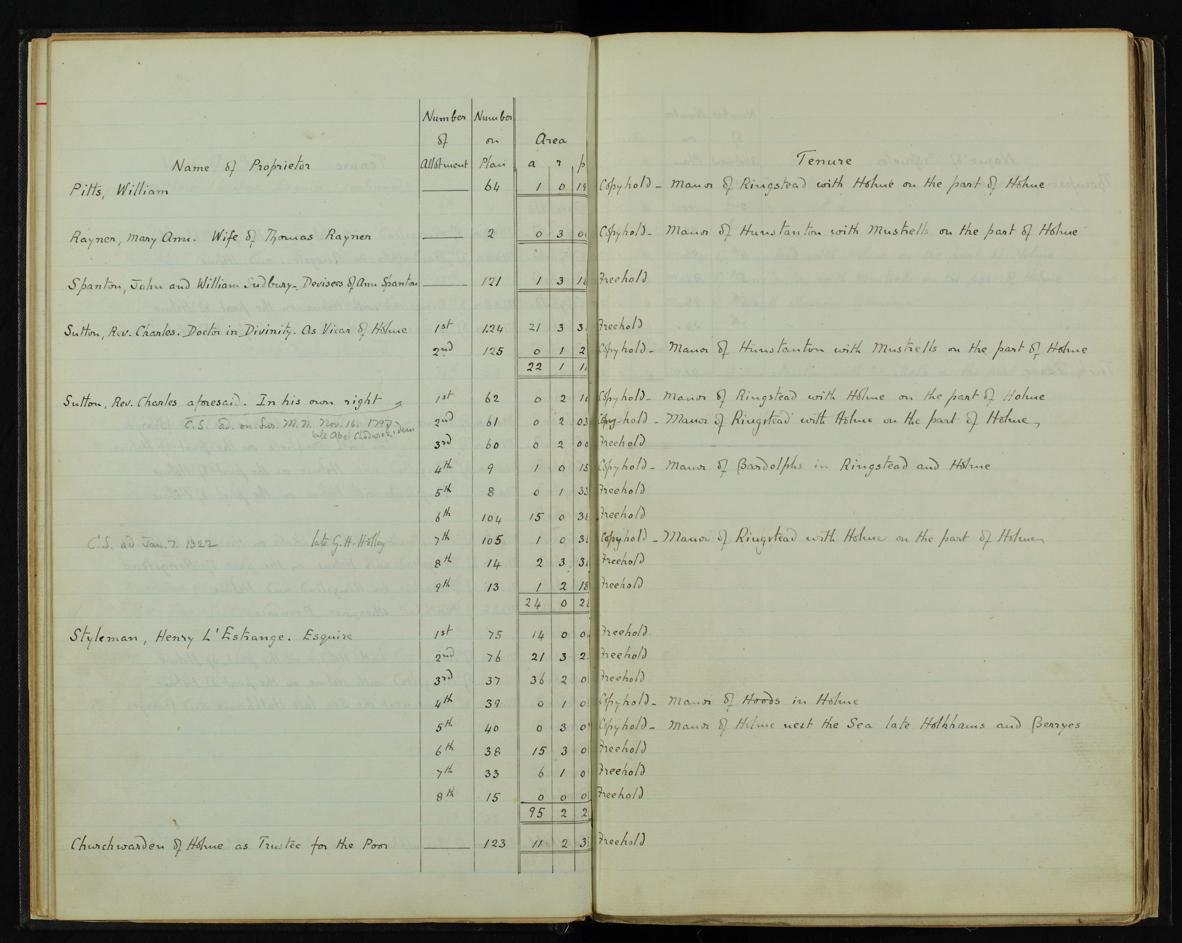 Number Number
of on Area
Name of Proprietor Allotment Plan a r p Tenure
Pitts, William —— 64 1 0 19 Copyhold - Manor of Ringstead with Holme on the part of Holme
Rayner, Mary Ann. Wife of Thomas Rayner —— 2 0 3 Copyhold - Manor of Hunstanton with Mustrells on the part of Holme
Spanton, John and William Sudbury - Devisees of Ann Spanton —— 121 1 3 Freehold
Sutton, Rev. Charles. Doctor in Divinity. As Vicar of Holme 1st 124 21 3 Freehold
2nd 125 0 1 Copyhold - Manor of Hunstanton with Mustrells on the part of Holme
22 1
Sutton, Rev. Charles aforesaid. In his own right 1st 62 0 2 Copyhold - Manor of Ringstead with Holme on the part of Holme
C.S. ad. on Sur. M.N. Nov. 16. 1798 2nd 61 0 2 03 Copy - Manor of Ringstead with Holme on the part of Holme
late Abel
3rd 60 0 2 00 Freehold
4th 9 1 0 15 Copyhold - Manor of Bardolphs in Ringstead and Holme
5th 8 0 1 33 Freehold
6th 104 15 0 Freehold
C.S. ad Jan. 7. 1822 late G. H. Holley 7th 105 1 0 Copyhold - Manor of Ringstead with Holme on the part of Holme
8th 14 2 3 Freehold
9th 13 1 2 18 Freehold
24 0
Styleman, Henry L'Estrange. Esquire 1st 75 14 0 Freehold
2nd 76 21 3 Freehold
3rd 37 36 2 Freehold
4th 39 0 1 Copyhold - Manor of Hoods in Holme
5th 40 0 3 Copyhold - Manor of Holme next the Sea late Holkhams and Berryes
6th 38 15 3 Freehold
7th 33 6 1 Freehold
8th 15 0 0 Freehold
95 2
Churchwarden of Holme as Trustee for the Poor —— 123 11 2 Freehold